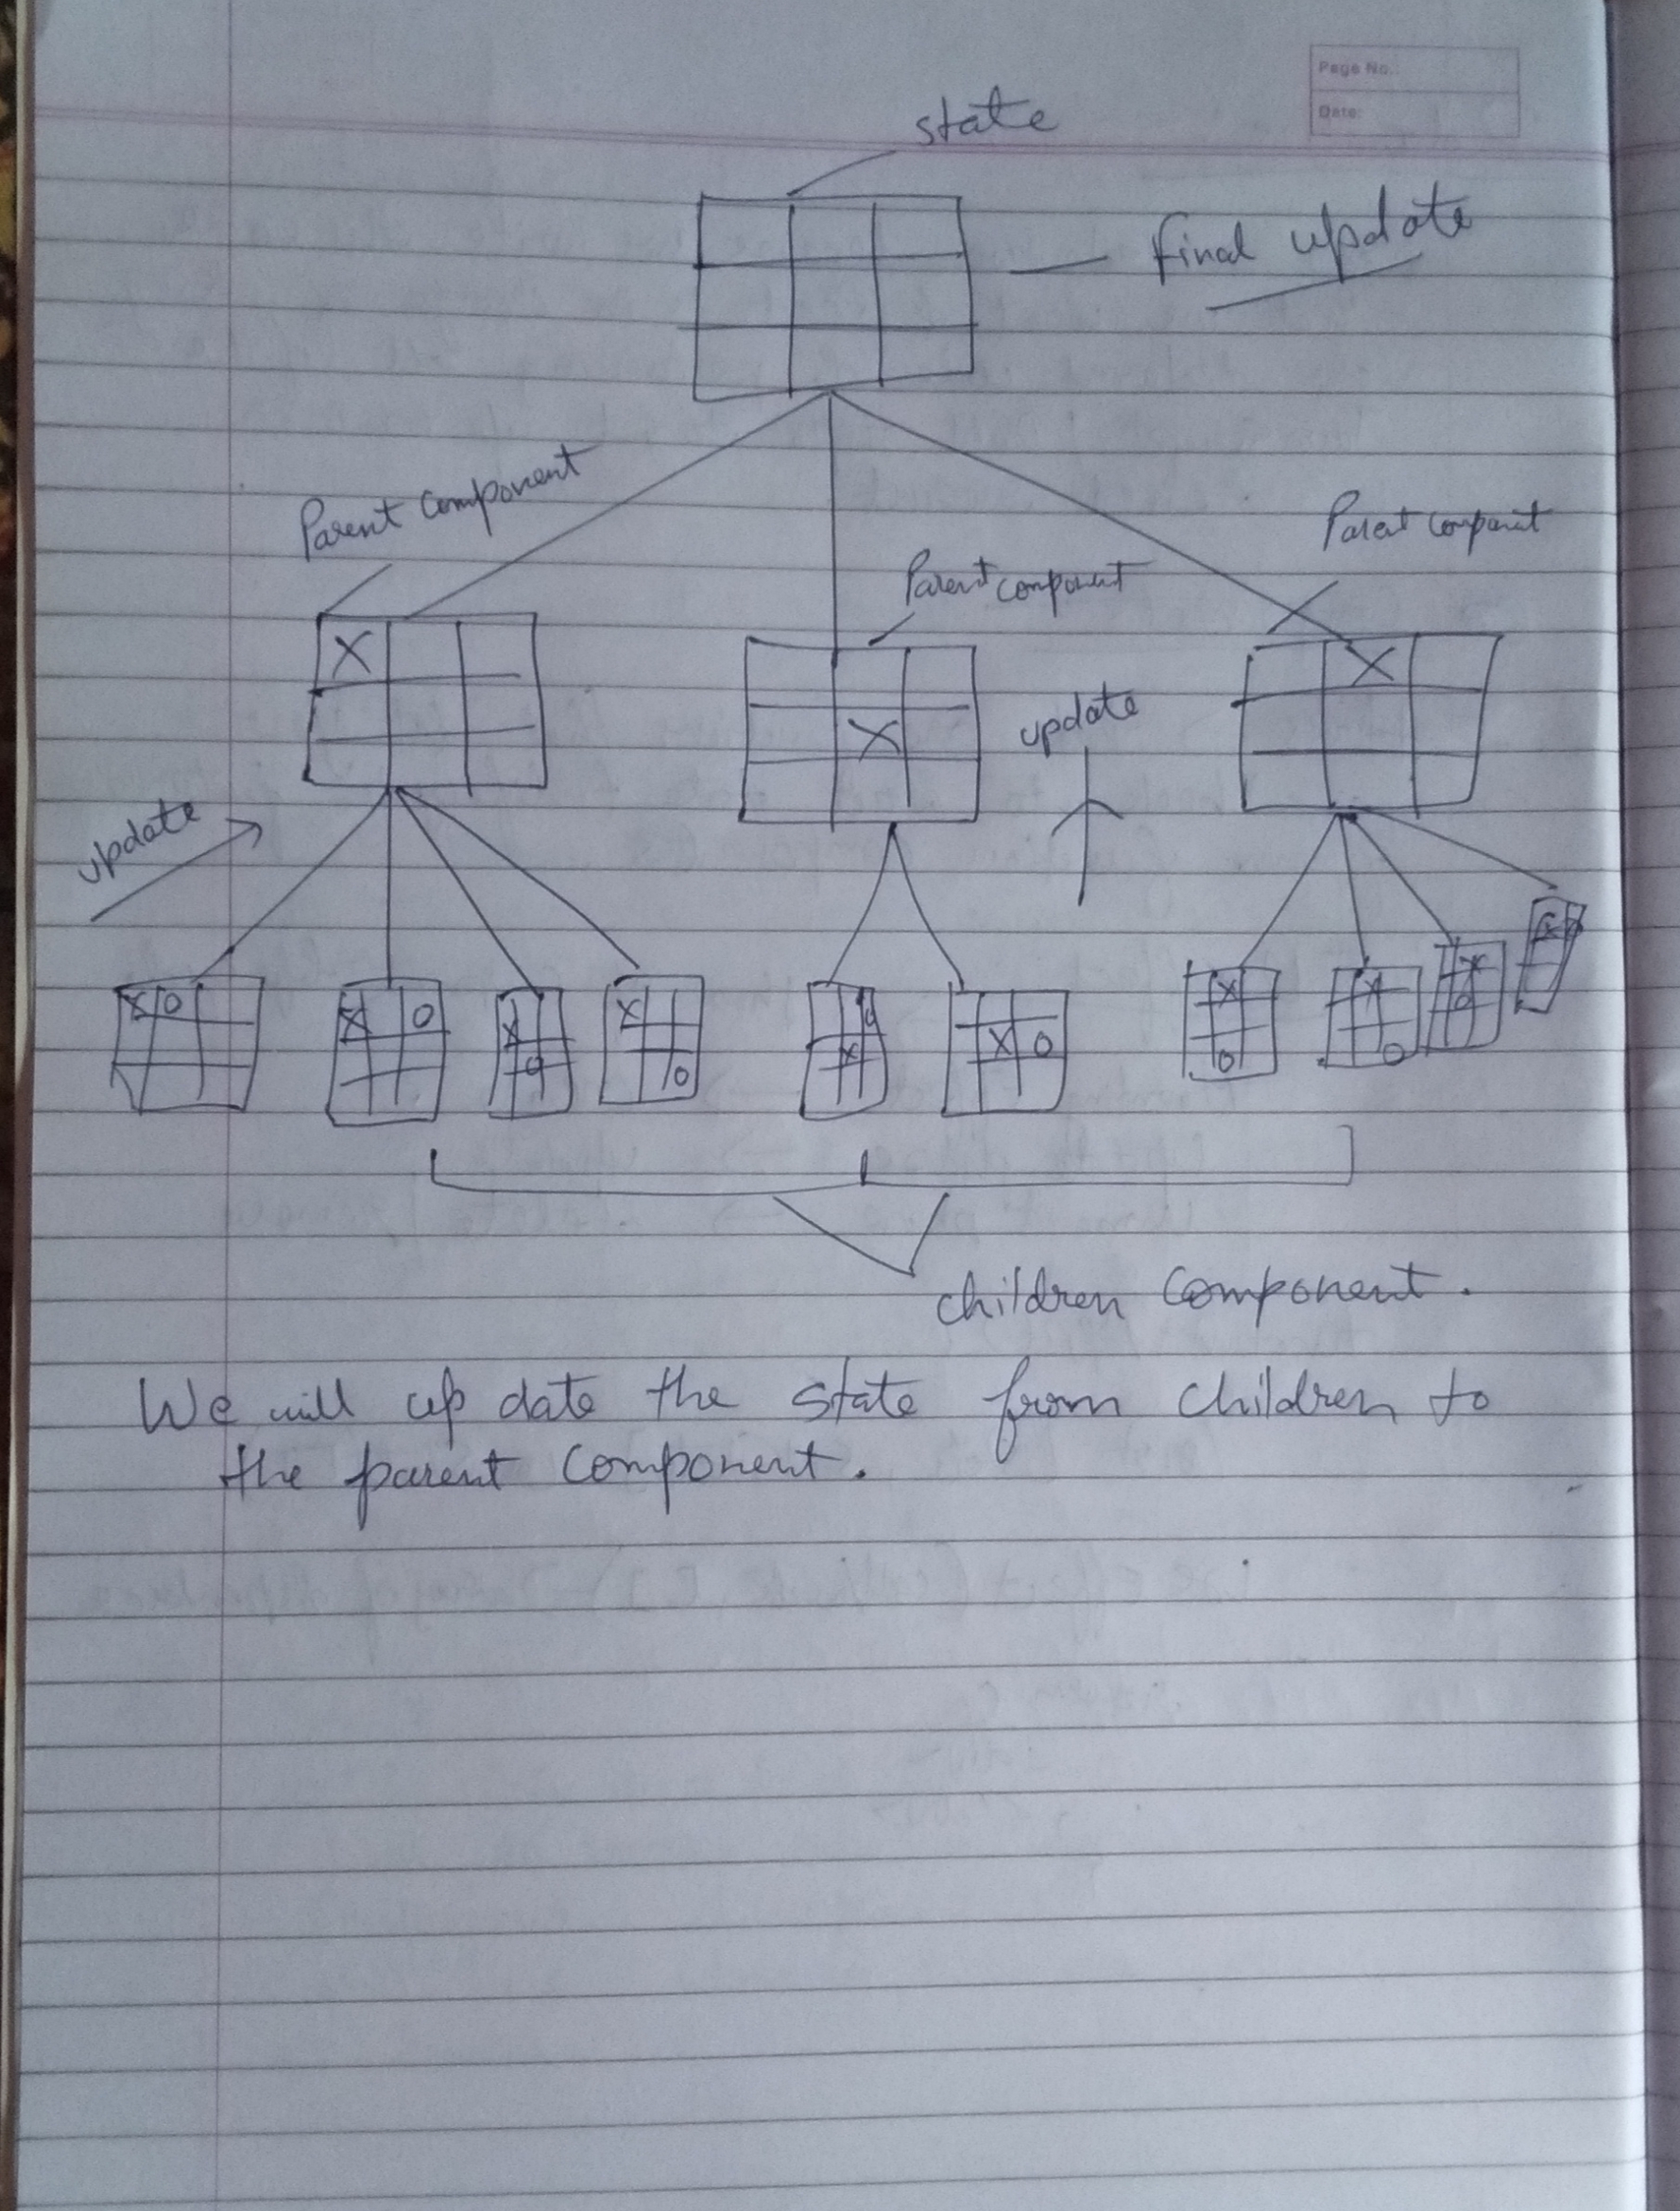 Page No.:
Date:
state
final update
Parent component
Parent component
Parent component
X
X
X
update
update
X O
X O
X
O
X
O
O
X
X O
X
O
X
O
X
O
children component.
We will up date the state from children to
the parent component.